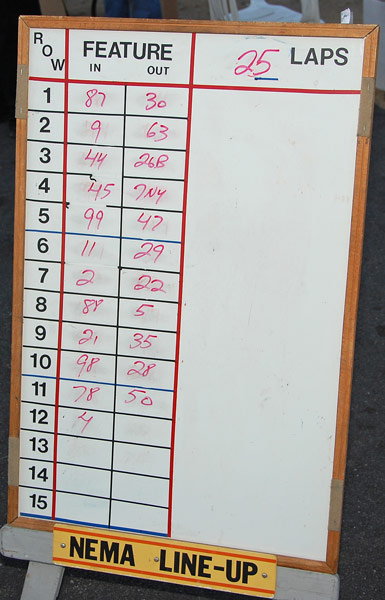 ROW FEATURE 25 LAPS
IN OUT
1 87 30
2 9 63
3 44 26B
4 45 7NY
5 99 47
6 11 29
7 2 22
8 88 5
9 21 35
10 98 28
11 78 50
12 4
13
14
15
NEMA LINE-UP